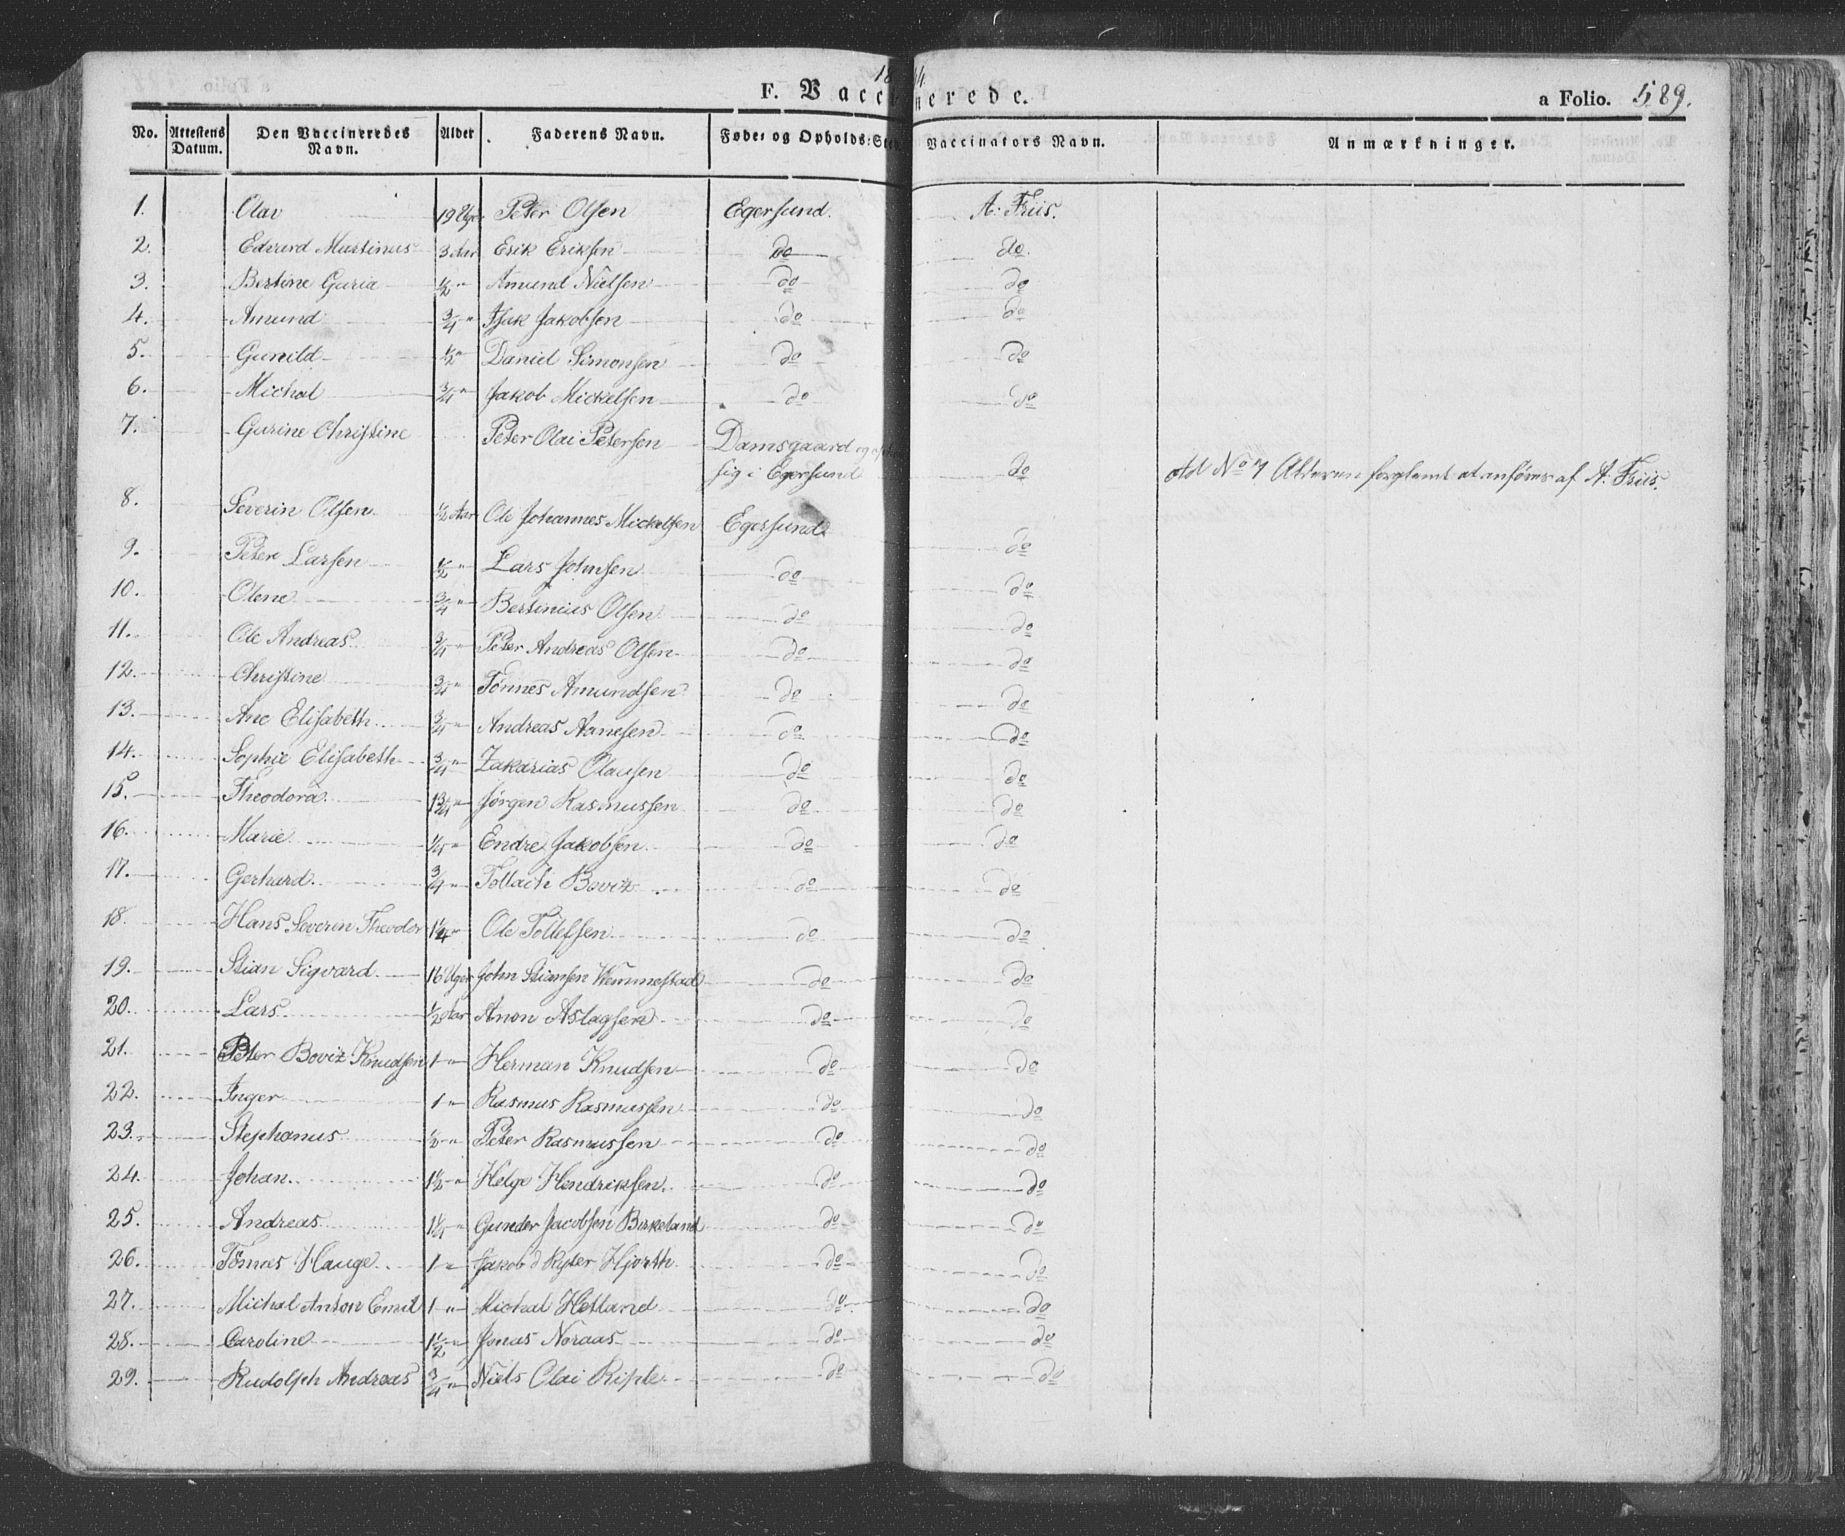 F. Vaccinerede.
a Folio. 589.
No. Attestens Datum. Den Vaccineredes Navn. Alder Faderens Navn. Føde- og Opholds-Sted Vaccinators Navn. Anmærkninger.
1. Olav 19 Uger Peter Olsen Egersund. A. Friis.
2. Edvard Martinus 3 Aar Erik Eriksen do do
3. Bertine Guria 1/2 " Amund Nielsen do do
4. Amund 3/4 " Isak Jakobsen do do
5. Gunild 1/2 " Daniel Simonsen do do
6. Michal 3/4 " Jakob Mickelsen do do
7. Gurine Christine Peter Olai Petersen Damsgaard
sig i Egersund do Ad No 7 Alderen forglemt at anføres af A. Friis.
8. Severin Olsen 1/2 Aar Ole Johannes Mickelsen Egersund do
9. Peter Larsen 1/2 " Lars Johnsen do do
10. Olene 3/4 " Bertinius Olsen do do
11. Ole Andreas 3/4 " Peter Andreas Olsen do do
12. Christine 3/4 " Tönnes Amundsen do do
13. Ane Elisabeth 3/4 " Andreas Aanesen do do
14. Sophie Elisabeth 3/4 " Zakarias Olausen do do
15. Theodora 1 3/4 " Jørgen Rasmussen do do
16. Marie 1/4 " Endre Jakobsen do do
17. Gerhard 3/4 " Tollach Bovitz do do
18. Hans Severin Theodor 1 1/4 " Ole Tollefsen do do
19. Stian Sigvard 16 Uger John Stiansen Hemmestad do do
20. Lars 1/2 Aar Anon Aslagsen do do
21. Peter Bovitz Knudsen 1 " Herman Knudsen do do
22. Inger 1 " Rasmus Rasmussen do do
23. Stephanus 1/2 " Peter Rasmussen do do
24. Johan 1 1/2 " Helge Hendriksen do do
25. Andreas 1 1/4 " Gunder Jacobsen Birkeland do do
26. Tönnes Hauge 1 " Jakob Hjorth do do
27. Michal Anton Emil 1 " Michal Hetland do do
28. Caroline 1 1/2 " Jonas Noraas do do
29. Rudolph Andreas 3/4 " Niels Olai Riple do do